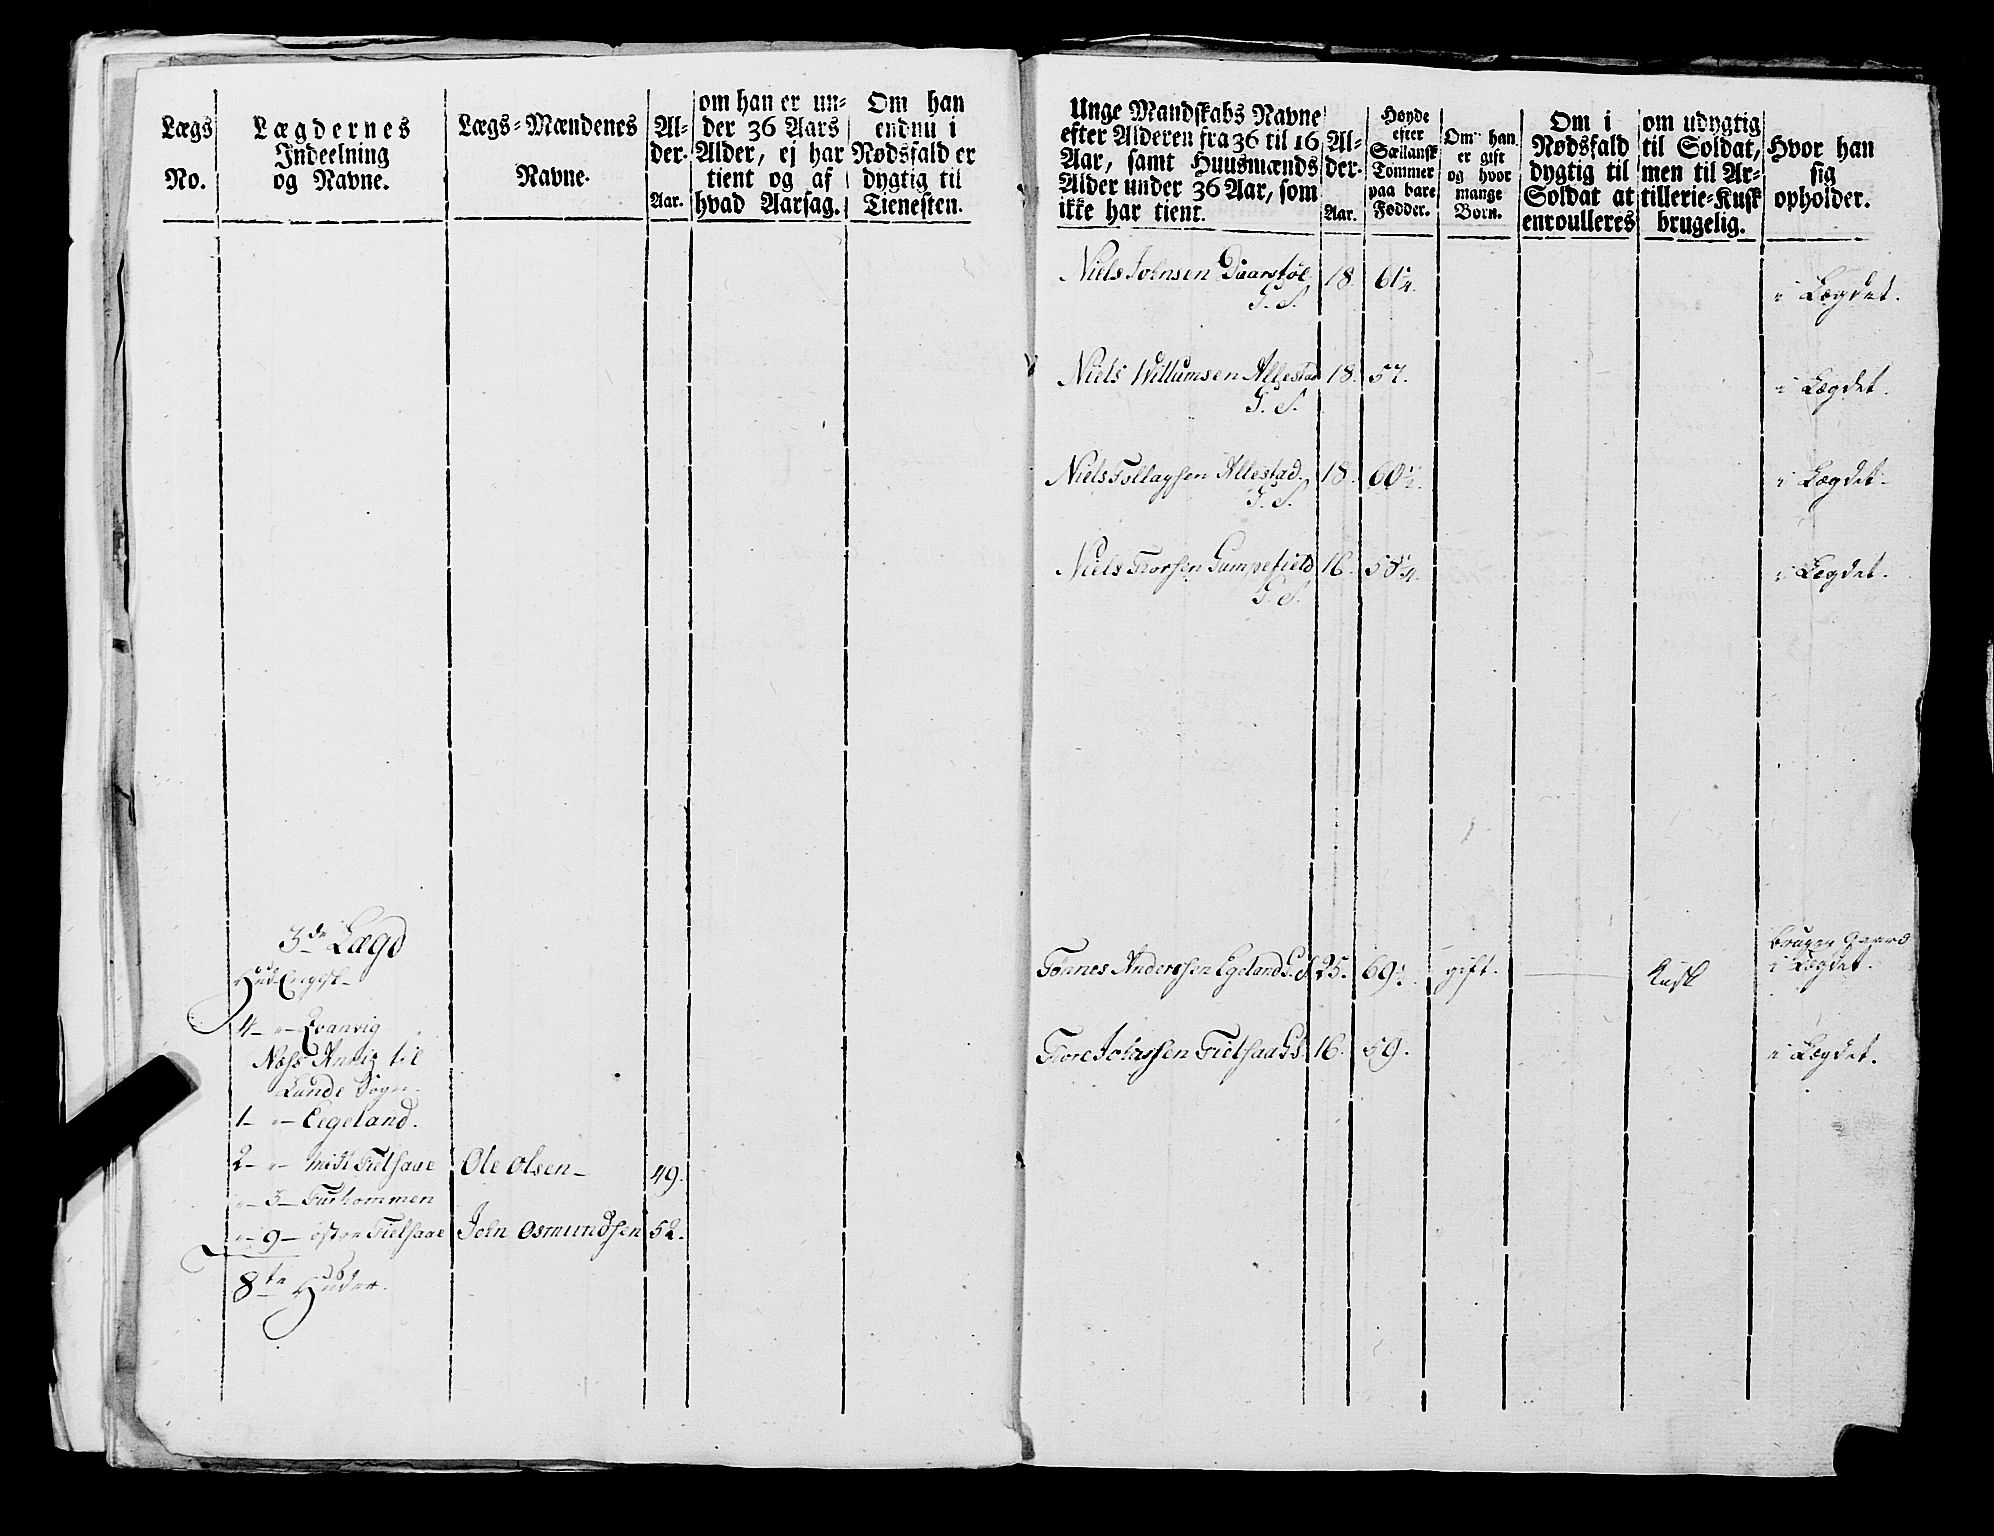 Lægs
No.
Lægdernes
Indeelning
og Navne.
Lægs-Mændenes
Navne.
Al-
der.
Aar.
om han er un-
der 36 Aars
Alder, ej har
tient og af
hvad Aarsag.
Om han
endnu i
Nødsfald er
dygtig til
Tienesten.
3de Lægd
4 - " - Qvanvig
til
Lunde Sogn
1 - " - Eegeland.
2 - " - midt Fielsaae
Ole Olsen -
49.
" - 3 -
" - 9 - østre Fielsaae
John Osmundsen
52.
8te Huder.
Unge Mandskabs Navne
efter Alderen fra 36 til 16
Aar, samt Huusmænds
Alder under 36 Aar, som
ikke har tient.
Al-
der.
Aar.
Høyde
efter
Sællansk
Tommer
paa bare
Fødder.
Om han
er gift
og hvor
mange
Børn.
Om i
Nødsfald
dygtig til
Soldat at
enroulleres
om udygtig
til Soldat,
men til Ar-
tillerie-Kusk
brugelig.
Hvor han
sig
opholder.
Niels Johnsen
18.
61 1/4.
i Lægdet.
G. S.
Niels Willumsen Allestad
18.
57.
i Lægdet.
G. S.
Niels Tollagsen Allestad.
18.
60 1/2.
i Lægdet.
G. S.
Niels Thorsen Gumpefield
16.
58 1/4.
i Lægdet.
G. S.
Tønnes Anderssen Egeland G. S.
25.
69 1/2.
gift.
Kusk
bruger Gaard
i Lægdet.
Tore Johnssen Fielsaa G S.
16.
59.
i Lægdet.